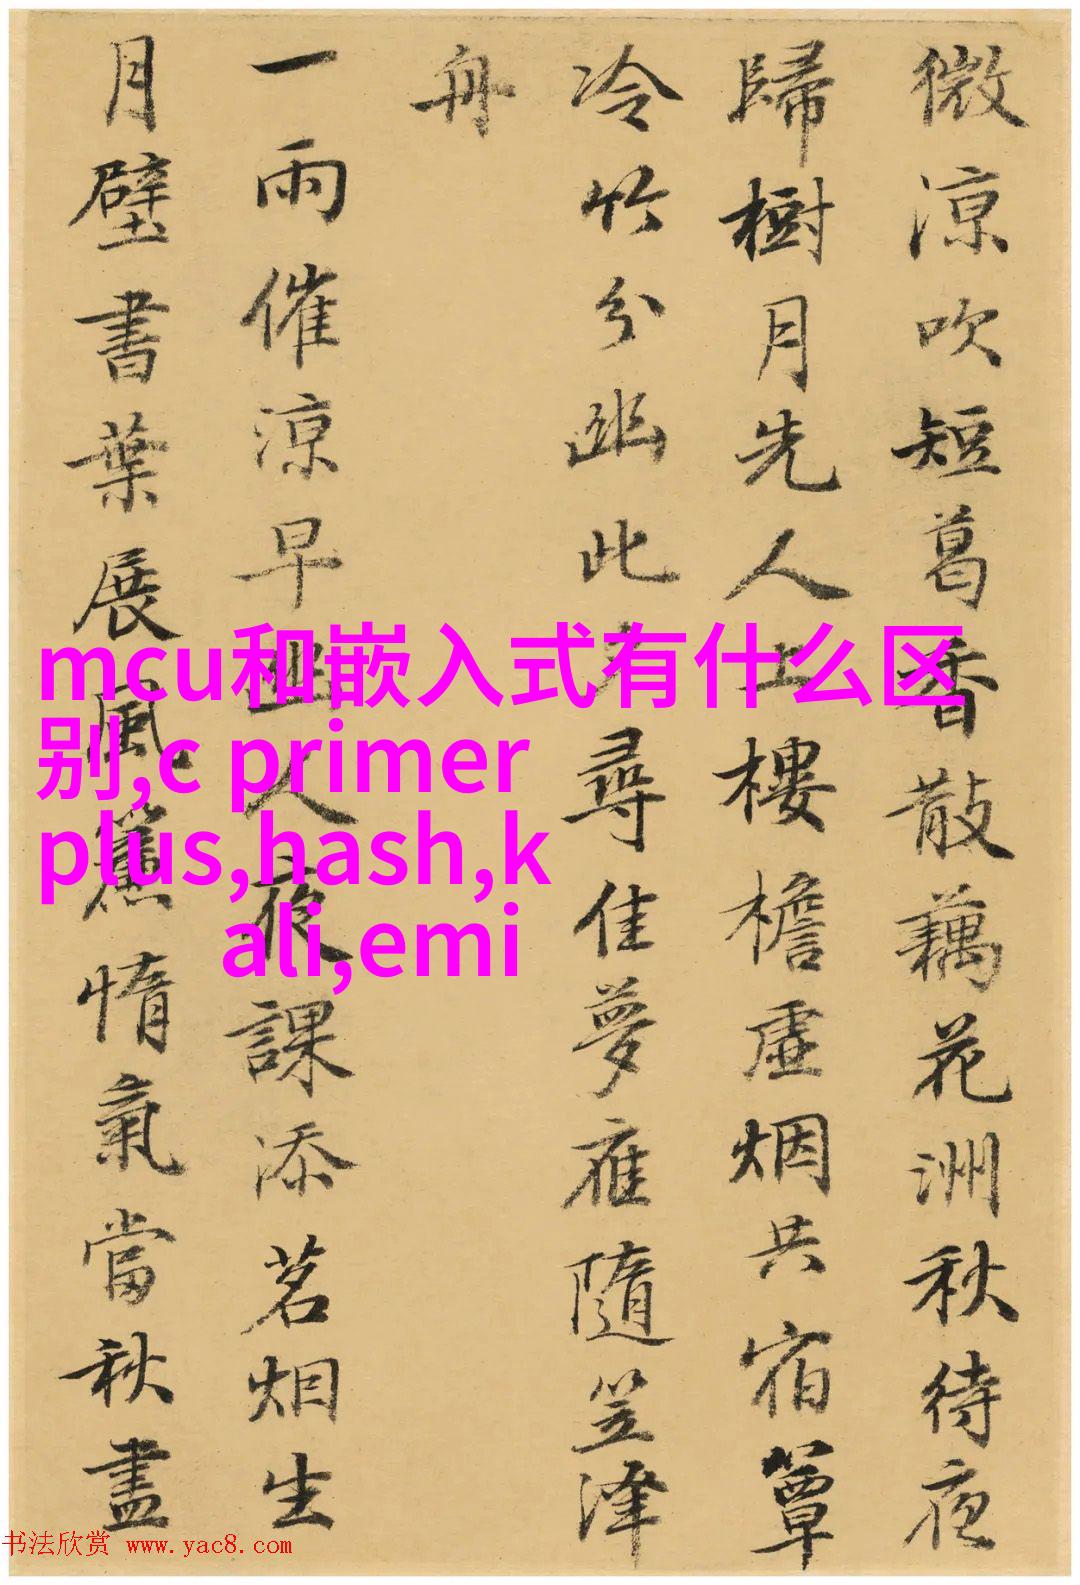 微涼吹短葛香散藕花洲秋待夜
歸樹月先人上樓檐虛烟共宿簟
冷竹分幽此夕尋佳夢應隨笠澤
舟
一雨催涼早幽人夜課添茗烟生
月壁書葉展風簾惰氣當秋盡
mcu和嵌入式有什么区
别,c primer
plus,hash,k
ali,emi
书法欣赏 www.yac8.com